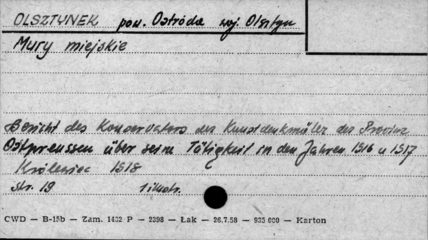 OLSZTYNEK pow. Ostróda woj. Olsztyn
Mury miejskie
Bericht des Konservators der Kunstdenkmäler der Provinz
Ostpreussen über seine Tätigkeit in den Jahren 1916 u 1917
Królewiec 1918
str. 19 1 ilustr.
CWD — B-15b — Zam. 1432 P — 2398 — Łak — 26.7.58 — 935 000 — Karton